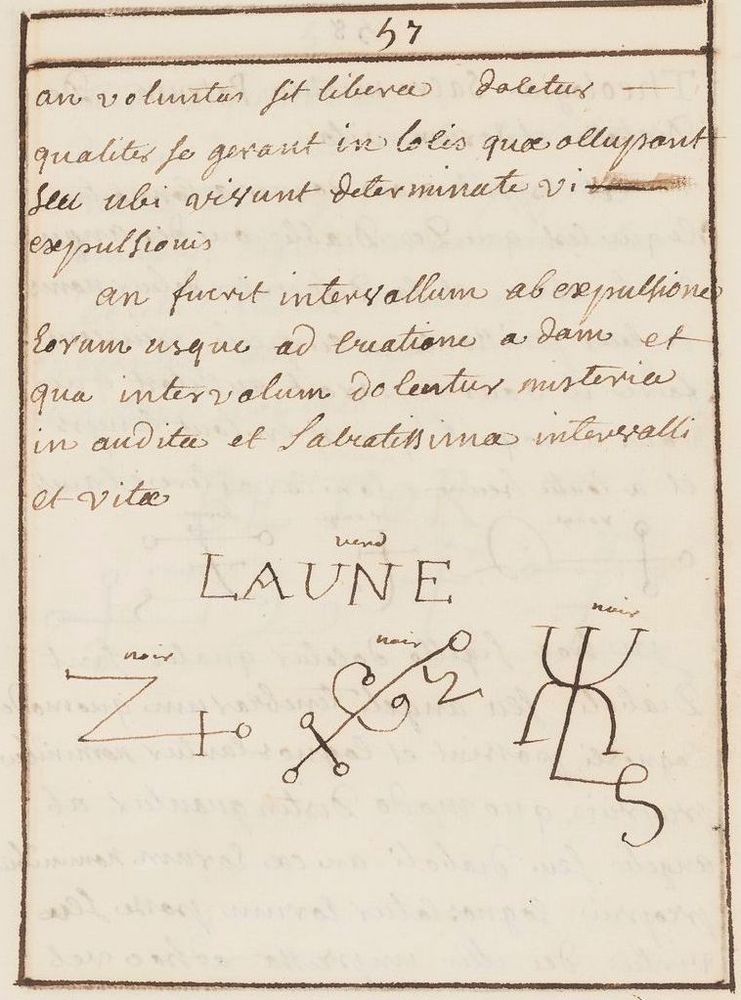 57
an voluntas sit libera docetur
qualiter se gerant in locis quæ occupant
seu ubi vivunt determinate vi
expulsionis
an fuerit intervallum ab expulsione
eorum usque ad creatione adam et
qua intervalum docentur misteria
in audita et sacratissima intervalli
et vitæ
verd
LAUNE
noir
noir
noir